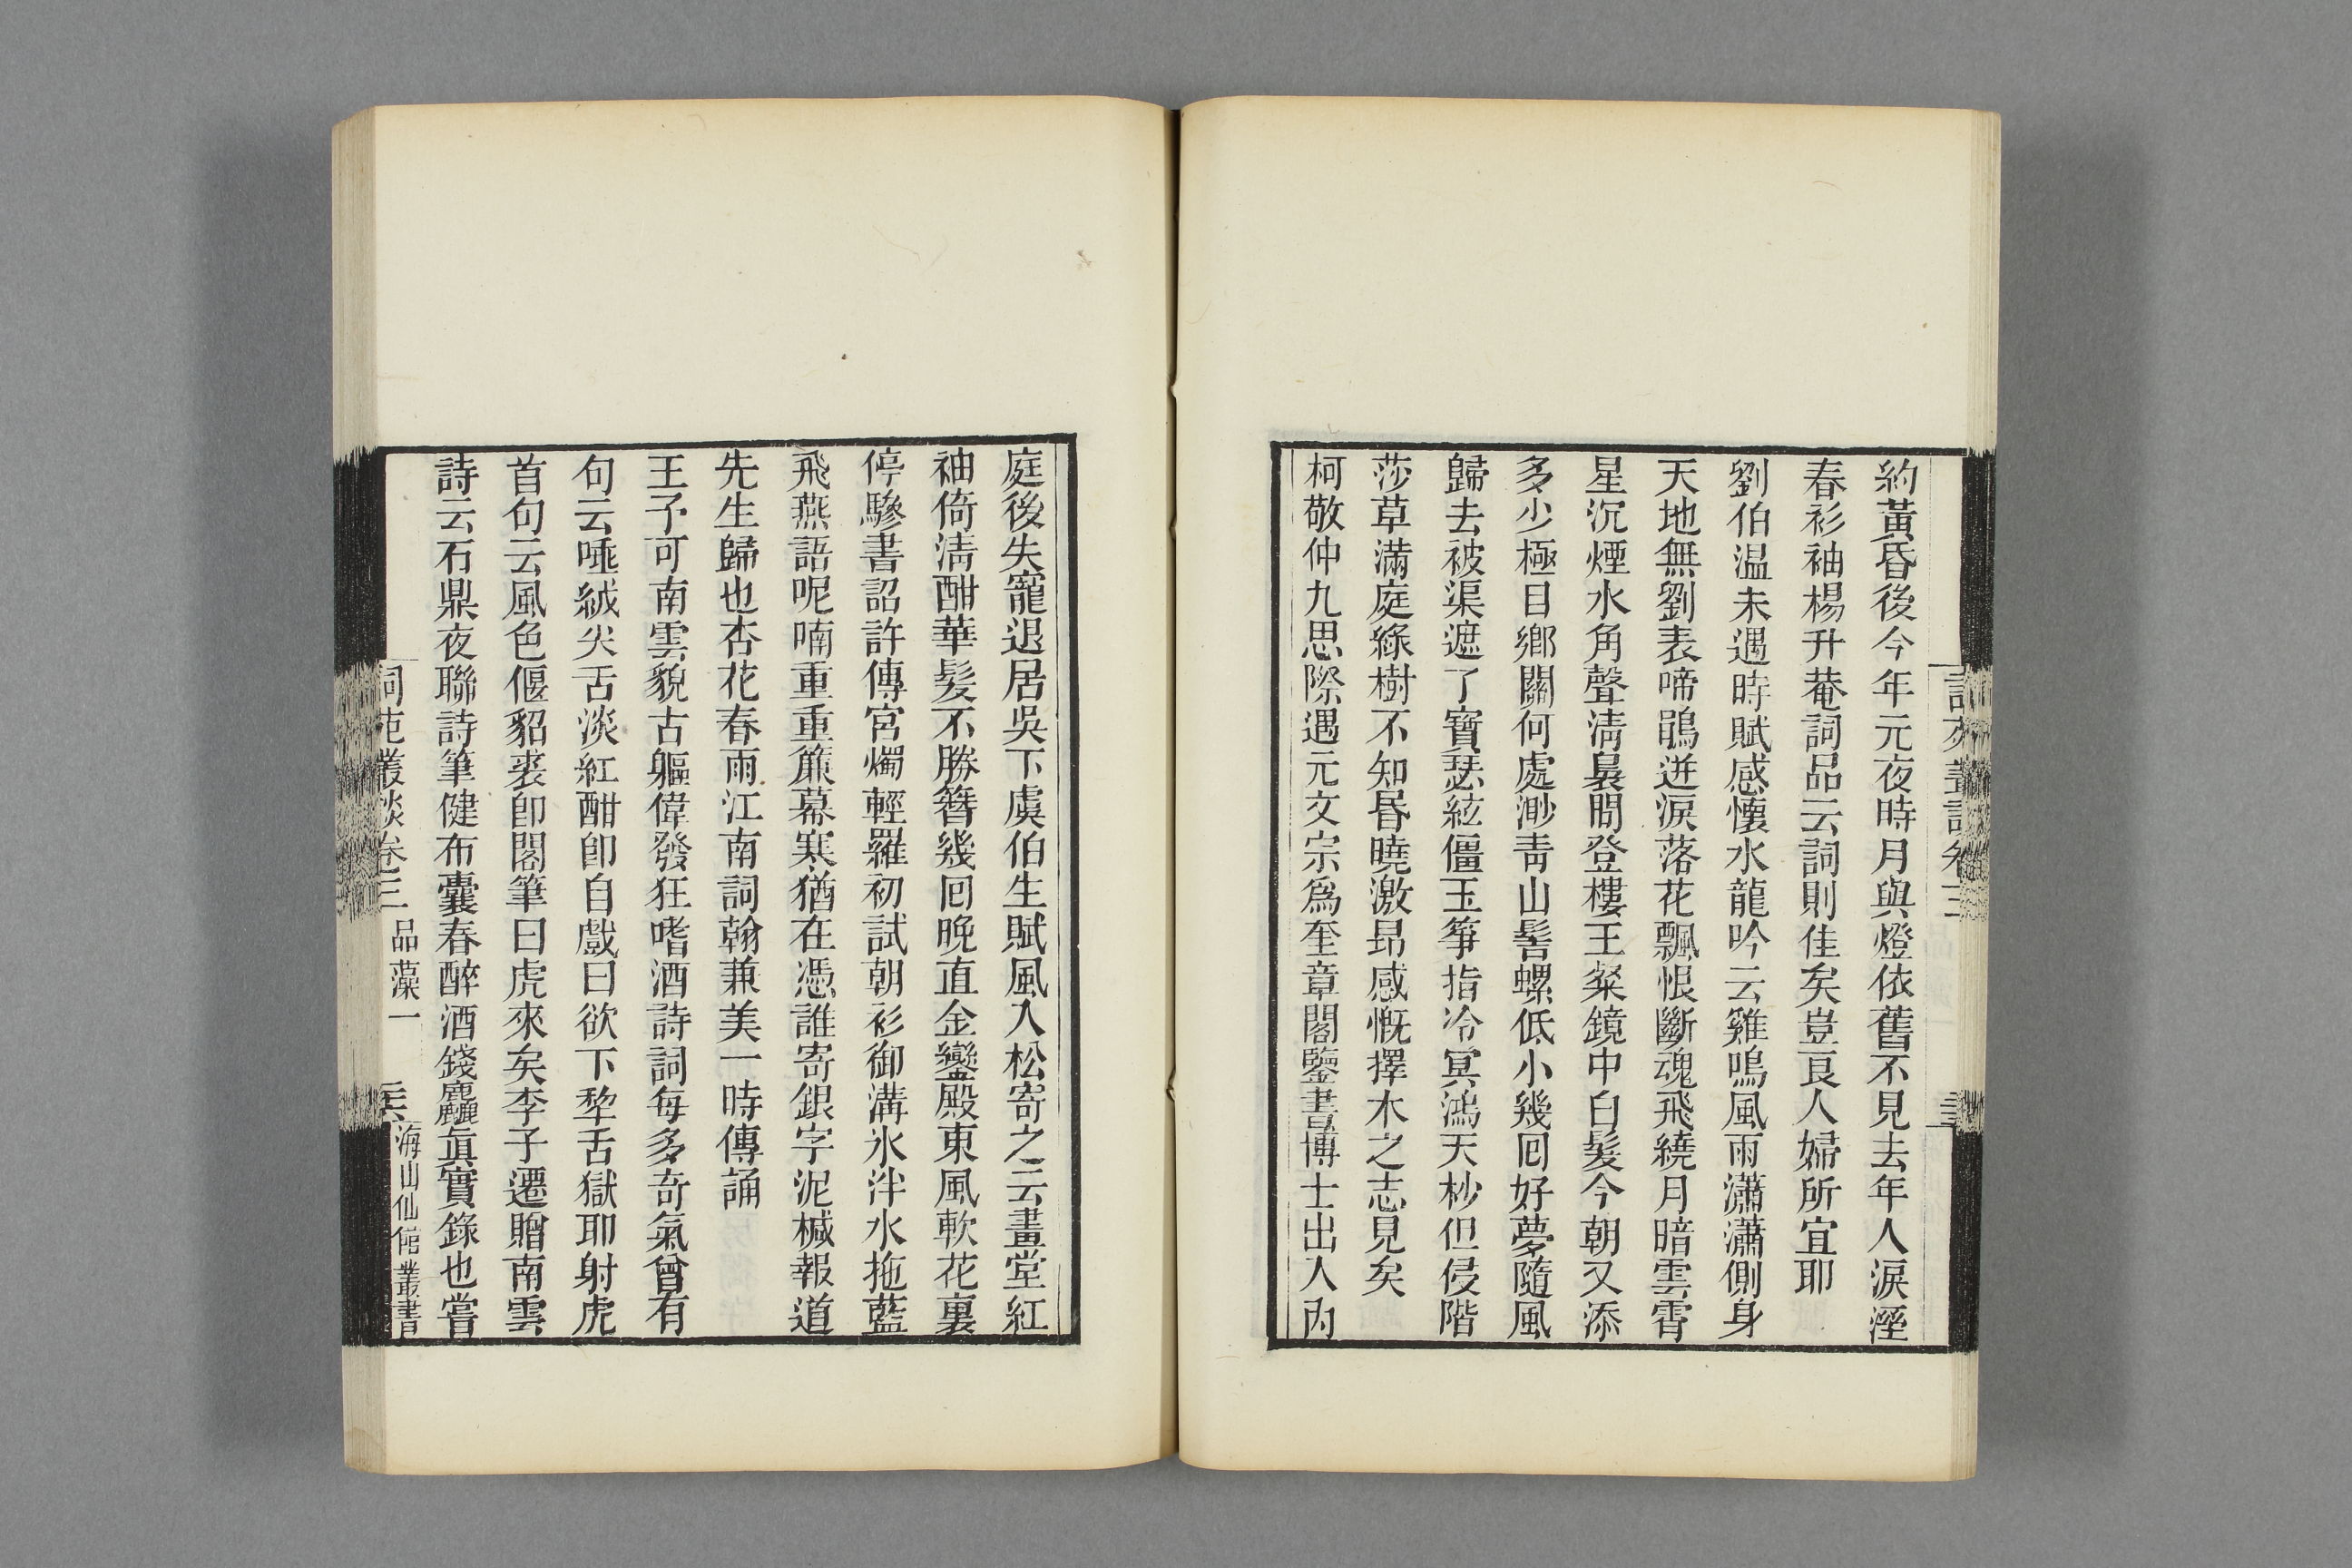 約黃昏後今年元夜時月與燈依舊不見去年人淚溼
春衫袖楊升菴詞品云詞則佳矣豈良人婦所宜耶
劉伯溫未遇時賦感懷水龍吟云雞鳴風雨瀟瀟側身
天地無劉表啼鵑迸淚落花飄恨斷魂飛繞月暗雲霄
星沉煙水角聲淸裊問登樓王粲鏡中白髮今朝又添
多少極目鄉關何處渺靑山髻螺低小幾囘好夢隨風
歸去被渠遮了寶瑟絃僵玉箏指冷冥鴻天杪但侵階
莎草滿庭綠樹不知昏曉激昻感慨擇木之志見矣
柯敬仲九思際遇元文宗爲奎章閣鑒書博士出入內
庭後失寵退居吳下虞伯生賦風入松寄之云畫堂紅
袖倚淸酣華髮不勝簪幾囘晚直金鑾殿東風軟花裏
停驂書詔許傳宮燭輕羅初試朝衫御溝氷泮水拖藍
飛燕語呢喃重重簾幕寒猶在憑誰寄銀字泥緘報道
先生歸也杏花春雨江南詞翰兼美一時傳誦
王予可南雲貌古軀偉發狂嗜酒詩詞每多奇氣曾有
句云唾絨尖舌淡紅酣卽自戲曰欲下犂舌獄耶射虎
首句云風色偃貂裘卽閣筆曰虎來矣李子遷贈南雲
詩云石鼎夜聯詩筆健布囊春醉酒錢麤眞實錄也嘗
詞苑叢談卷三 品藻一 海山仙館叢書